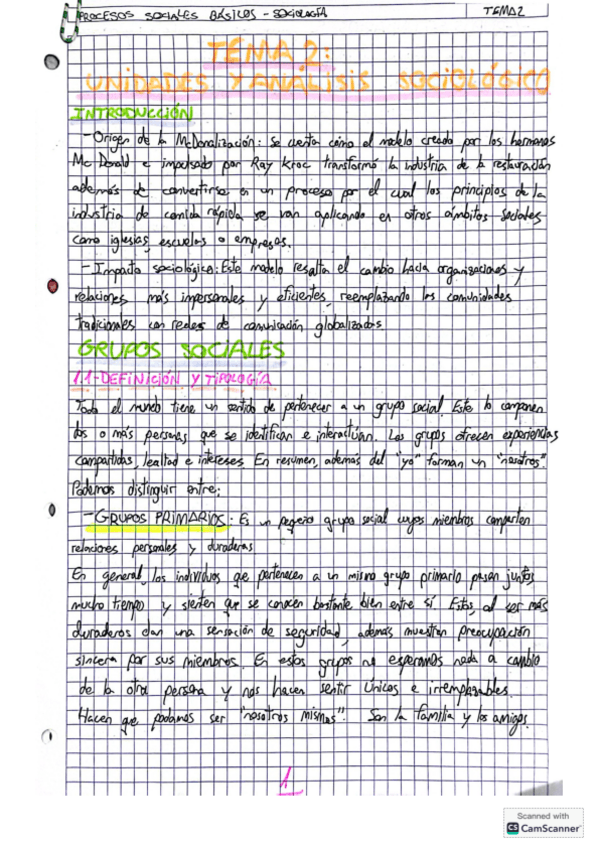 PROCESOS SOCIALES BÁSICOS - SOCIOLOGÍA
TEMA 2
TEMA 2:
UNIDADES Y ANÁLISIS SOCIOLÓGICO
INTRODUCCIÓN
- Origen de la McDonalización: Se cuenta cómo el modelo creado por los hermanos
Mc Donald e impulsado por Ray Kroc transformó la industria de la restauración
además de convertirse en un proceso por el cual los principios de la
industria de comida rápida se van aplicando en otros ámbitos sociales
como iglesias, escuelas o empresas.
- Impacto sociológico: Este modelo resalta el cambio hacia organizaciones y
relaciones más impersonales y eficientes, reemplazando las comunidades
tradicionales con redes de comunicación globalizadas
GRUPOS SOCIALES
1.1-DEFINICIÓN Y TIPOLOGÍA
Todo el mundo tiene un sentido de pertenecer a un grupo social. Este lo componen
dos o más personas que se identifican e interactúan. Los grupos ofrecen experiencias
compartidas, lealtad e intereses. En resumen, además del "yo" forman un "nosotros".
Podemos distinguir entre:
- GRUPOS PRIMARIOS: Es un pequeño grupo social cuyos miembros comparten
relaciones personales y duraderas
En general, los individuos que pertenecen a un mismo grupo primario pasan juntos
mucho tiempo y sienten que se conocen bastante bien entre sí. Estos, al ser más
duraderos dan una sensación de seguridad, además muestran preocupación
sincera por sus miembros. En estos grupos no esperamos nada a cambio
de la otra persona y nos hacen sentir únicos e irremplazables.
Hacen que podamos ser "nosotros mismos". Son la familia y los amigos.
1
Scanned with
CS CamScanner